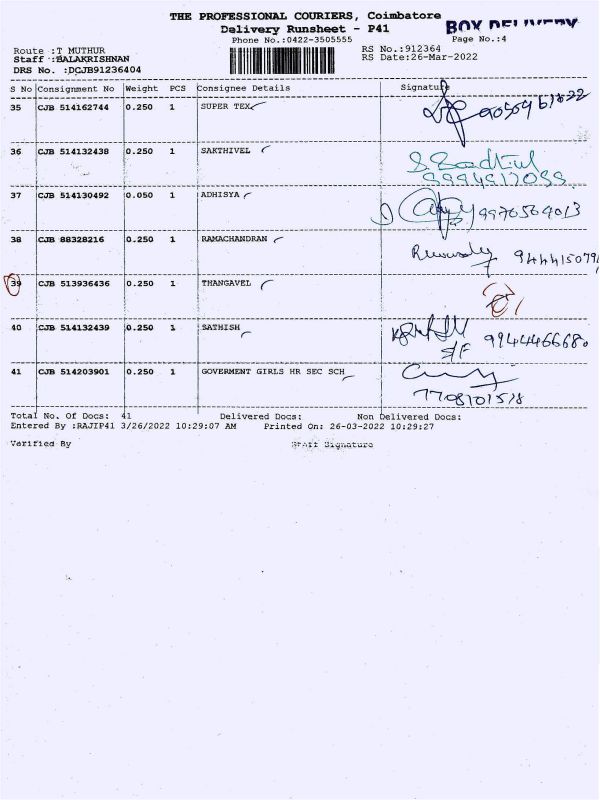 THE PROFESSIONAL COURIERS, Coimbatore
Delivery Runsheet - P41
BOX DELIVERY
Phone No.:0422-3505555
Page No.:4
Route :T MUTHUR
RS No.:912364
Staff :BALAKRISHNAN
RS Date:26-Mar-2022
DRS No. :DCJB91236404
S No Consignment No Weight PCS Consignee Details Signature
35 CJB 514162744 0.250 1 SUPER TEX
36 CJB 514132438 0.250 1 SAKTHIVEL
37 CJB 514130492 0.050 1 ADHISYA 9970564013
38 CJB 88328216 0.250 1 RAMACHANDRAN 944415079
39 CJB 513936436 0.250 1 THANGAVEL
40 CJB 514132439 0.250 1 SATHISH 9944466680
41 CJB 514203901 0.250 1 GOVERMENT GIRLS HR SEC SCH
7708101518
Total No. Of Docs: 41 Delivered Docs: Non Delivered Docs:
Entered By :RAJIP41 3/26/2022 10:29:07 AM Printed On: 26-03-2022 10:29:27
Varified By Staff Signature